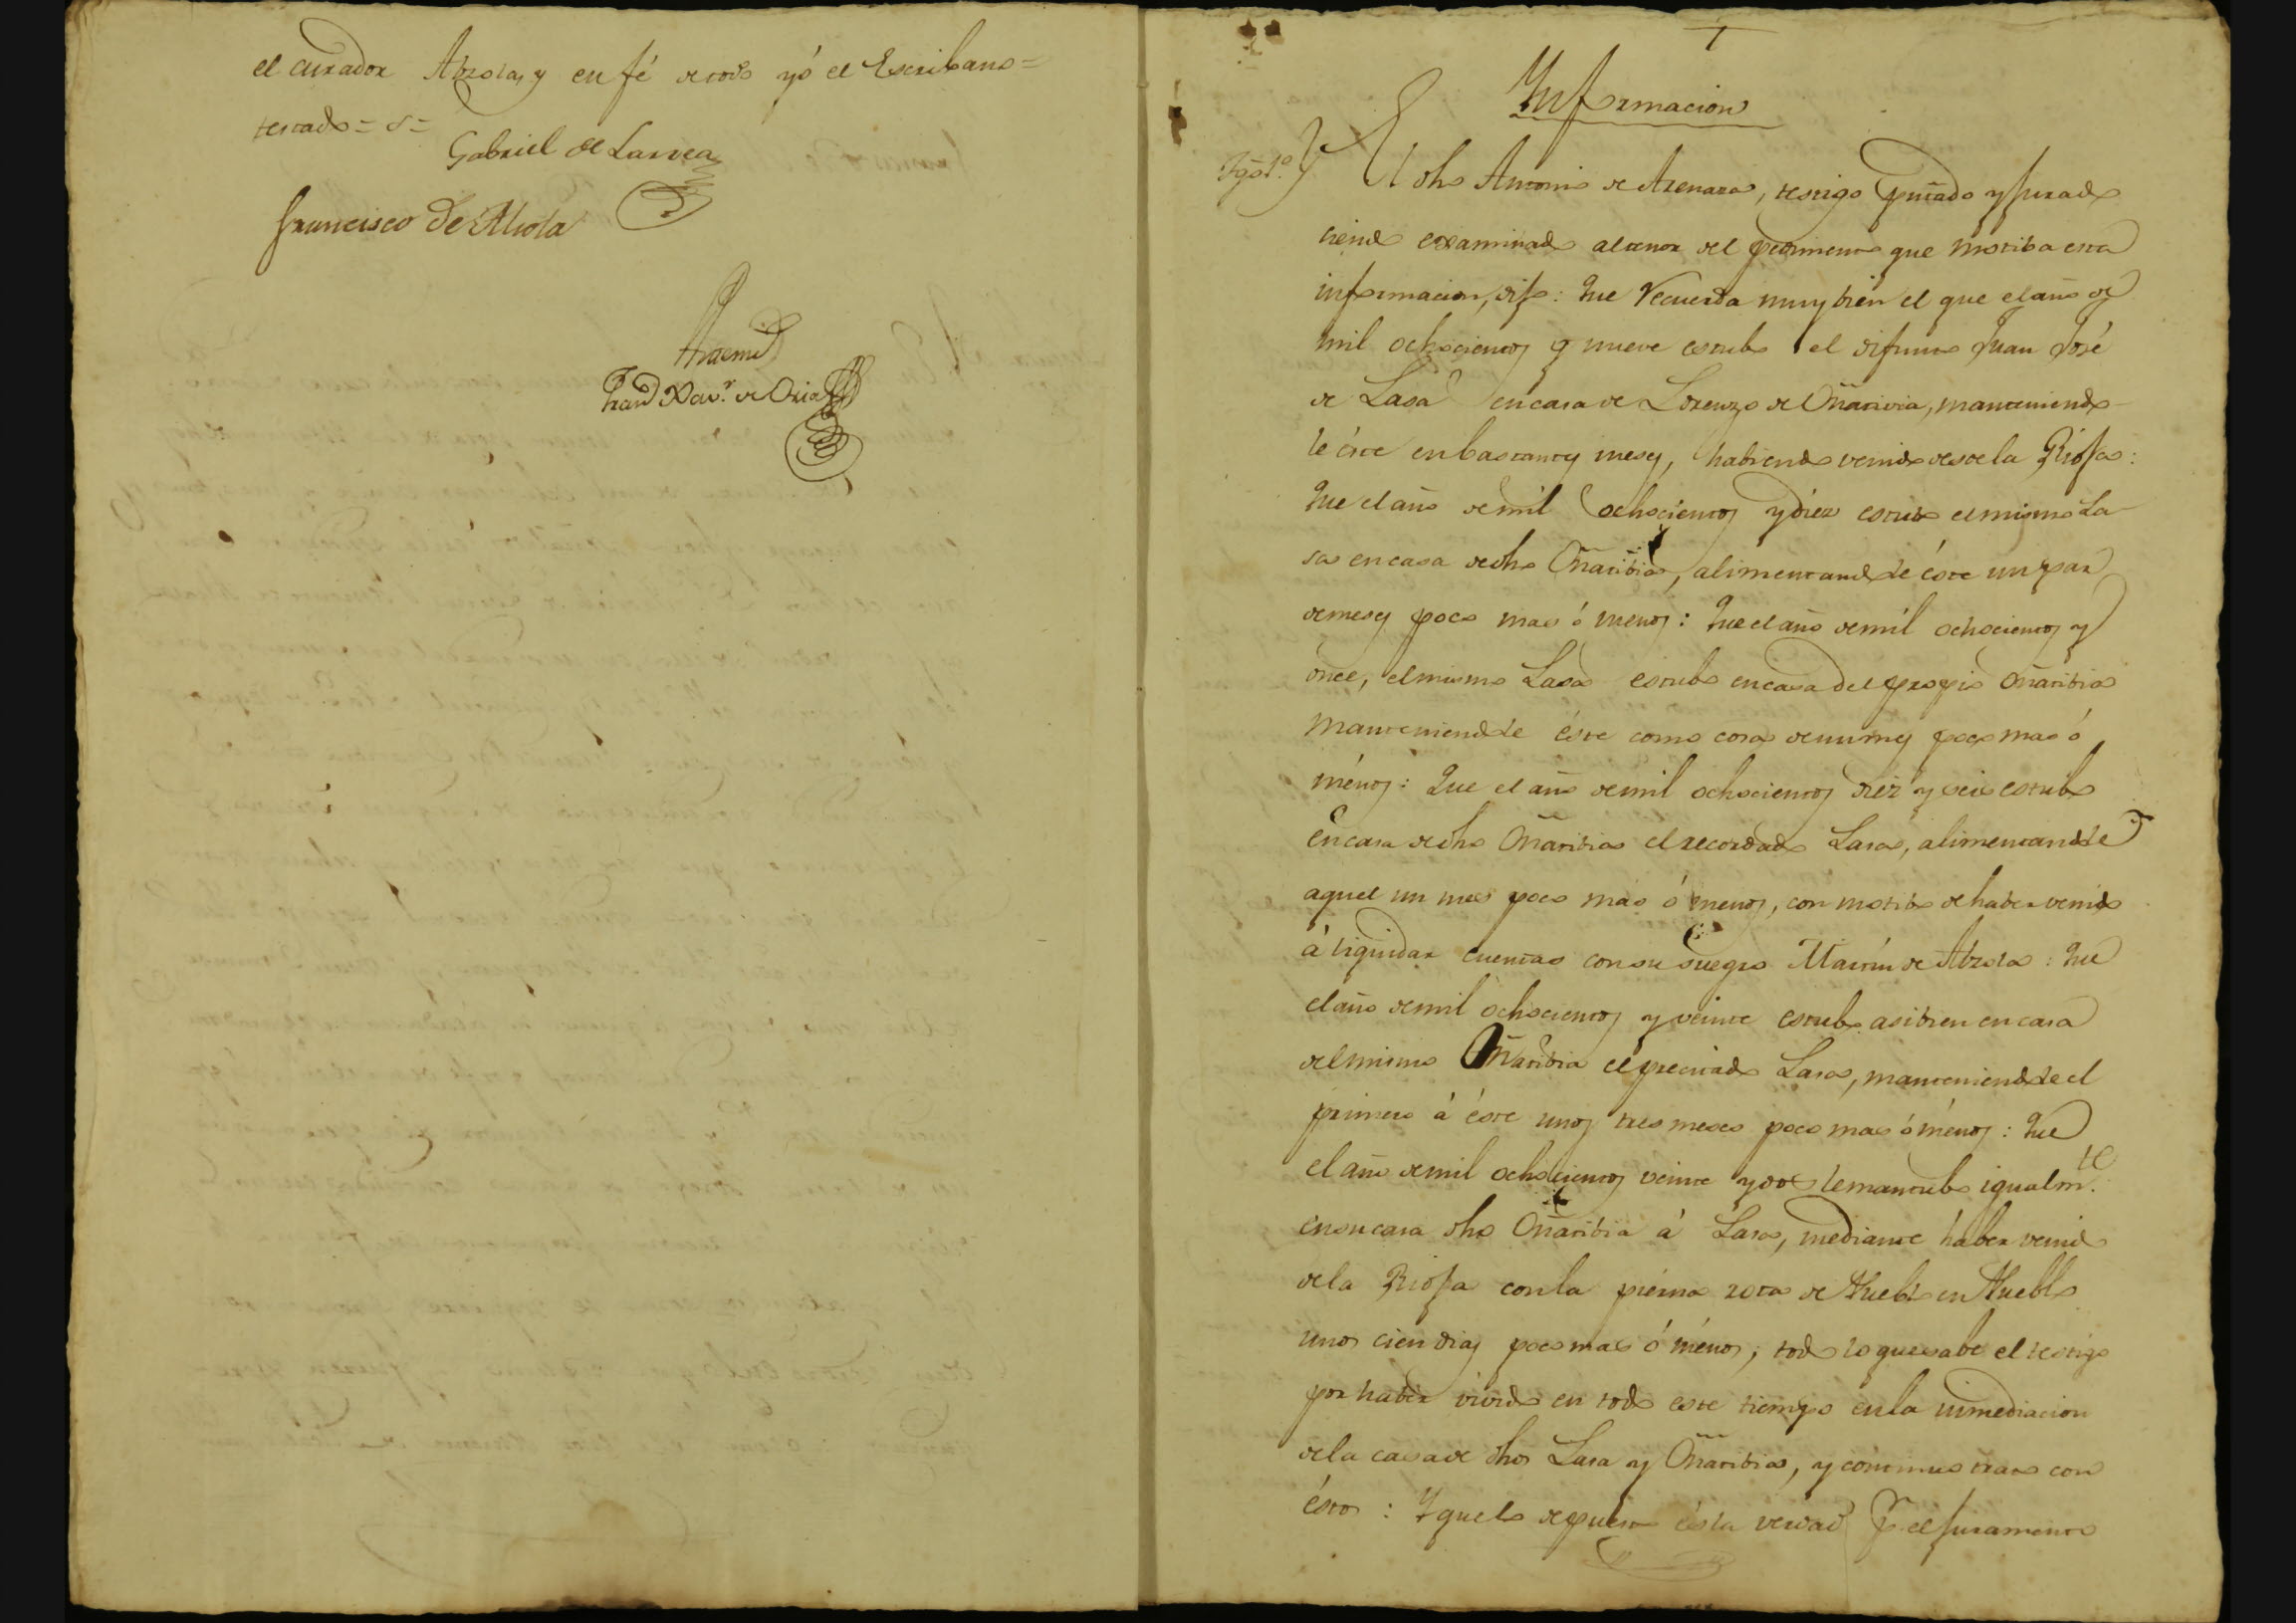 el curador Abzola, y en fé de todo yó el Escribano=
testado= d=
Gabriel de Larrea
Francisco de Alzola
Antemi
Fran.co Xav.r de Oria
Informacion
Tgo. 1.º
El dho Antonio de Arenaza, testigo pntado y jurado
siendo examinado al tenor del pedimento que motiba esta
informacion, dijo: Que Recuerda muy bien el que el año de
mil ochocientos y nueve estubo el difunto Juan José
de Lasa en casa de Lorenzo de Oñativia, manteniendo-
le éste en bastantes meses, habiendo venido desde la Rioja:
Que el año de mil ochocientos y diez estubo el mismo La-
sa en casa de dho Oñatibia, alimentandole éste un par
de meses poco mas ó menos: Que el año de mil ochocientos y
once, el mismo Lasa estubo en casa del propio Oñatibia
manteniendole éste como cosa de un mes poco mas ó
ménos: Que el año de mil ochocientos diez y seis estubo
en casa de dho Oñatibia el recordado Lasa, alimentandole
aquel un mes poco mas ó menos, con motibo de haber venido
á liquidar cuentas con su suegro Martin de Abzola: Que
el año de mil ochocientos y veinte estubo asibien en casa
del mismo Oñatibia el precitado Lasa, manteniendole el
primero á éste unos tres meses poco mas ó ménos: Que
el año de mil ochocientos veinte y dos le mantubo igualm.te
en su casa dho Oñatibia á Lasa, mediante haber venido
de la Rioja con la pierna rota de Pueblo en Pueblo
unos cien dias poco mas ó ménos; todo lo que sabe el testigo
por haber vivido en todo este tiempo en la inmediacion
de la casa de dhos Lasa y Oñatibia, y continuo trato con
éstos: Y que lo depuesto és la verdad p.r el juramento